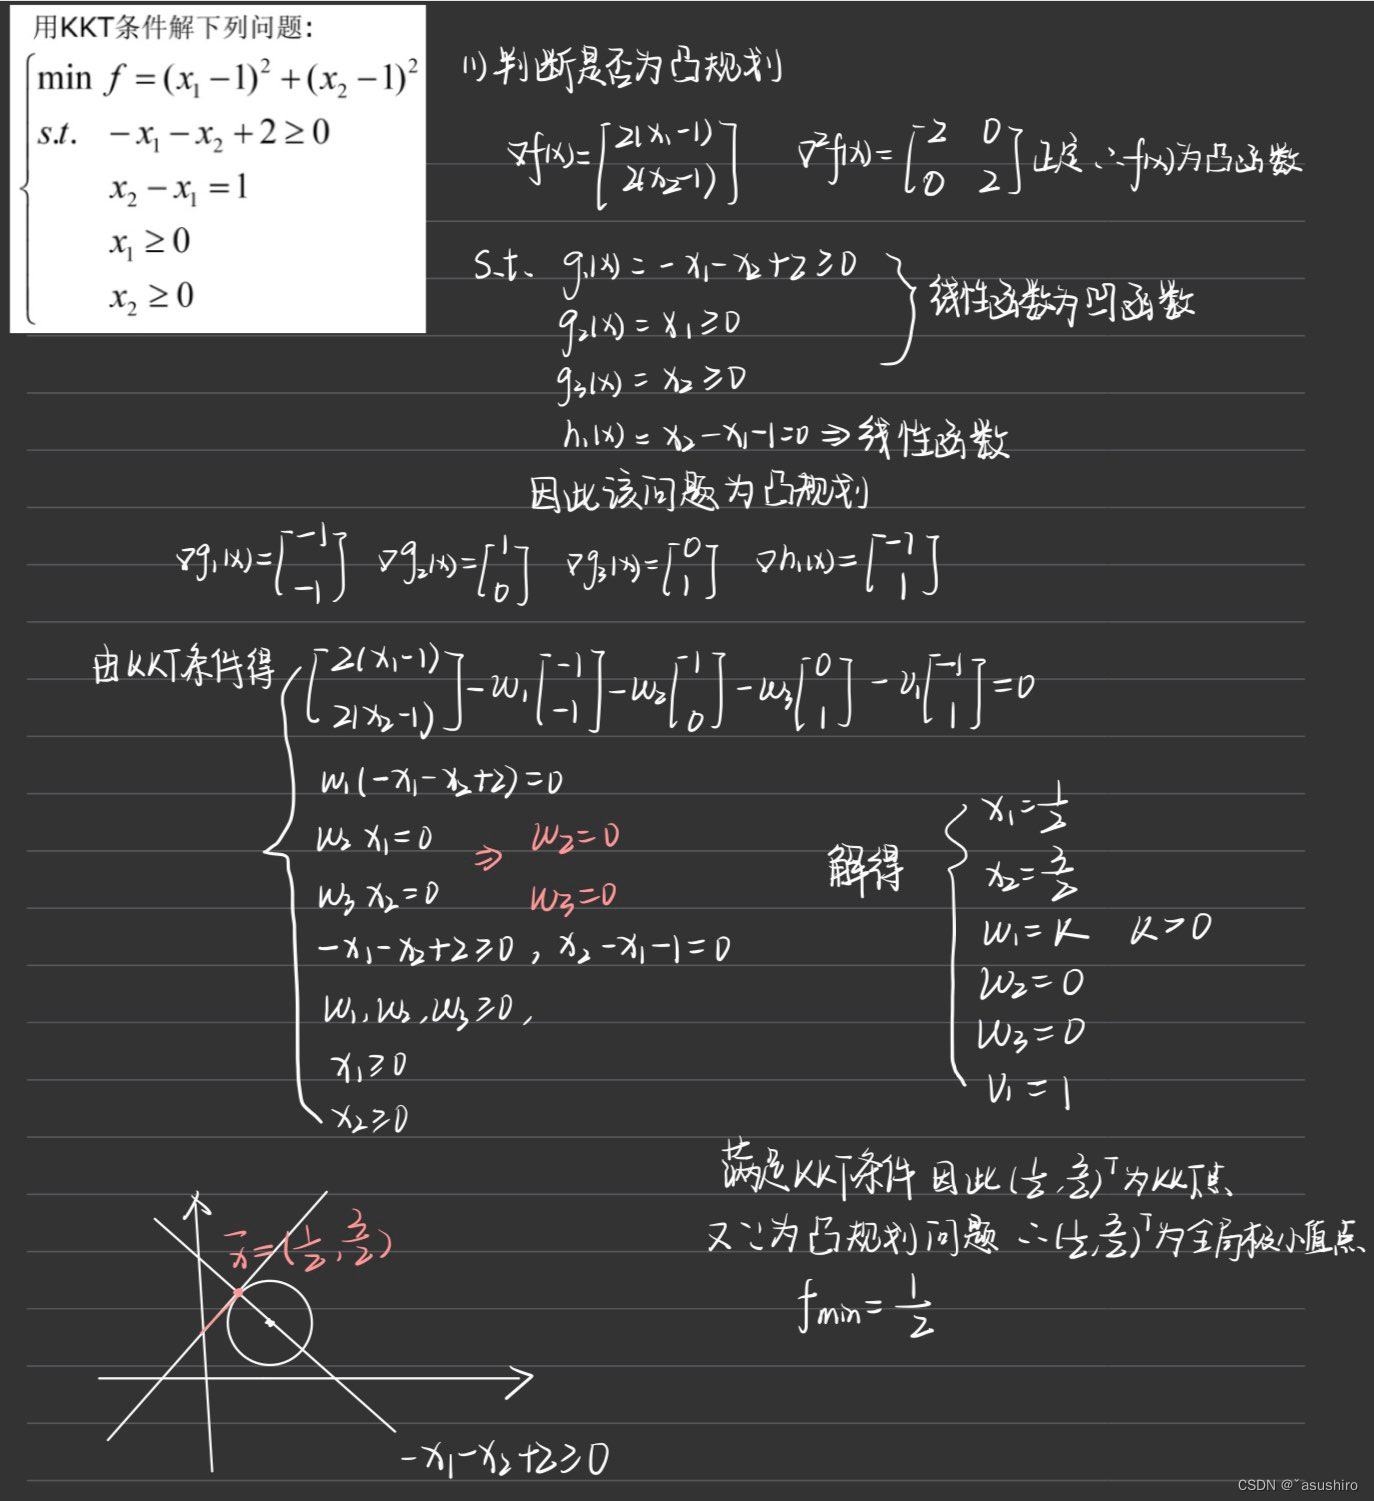 用KKT条件解下列问题:
min f = (x₁ − 1)² + (x₂ − 1)²
s.t. − x₁ − x₂ + 2 ≥ 0
x₂ − x₁ = 1
x₁ ≥ 0
x₂ ≥ 0
(1) 判断是否为凸规划
∇f(x) = [2(x₁-1) 2(x₂-1)] ∇²f(x) = [2 0 0 2] 正定 ∴f(x)为凸函数
s.t. g₁(x) = -x₁-x₂+2≥0
g₂(x) = x₁≥0
g₃(x) = x₂≥0
线性函数为凹函数
h₁(x) = x₂-x₁-1=0 ⇒ 线性函数
因此该问题为凸规划
∇g₁(x)=[-1 -1] ∇g₂(x)=[1 0] ∇g₃(x)=[0 1] ∇h₁(x)=[-1 1]
由KKT条件得 [2(x₁-1) 2(x₂-1)] - w₁[-1 -1] - w₂[1 0] - w₃[0 1] - v₁[-1 1] = 0
w₁(-x₁-x₂+2)=0
w₂x₁=0 ⇒ w₂=0
w₃x₂=0 w₃=0
-x₁-x₂+2≥0, x₂-x₁-1=0
w₁,w₂,w₃≥0,
x₁≥0
x₂≥0
解得
x₁=1/2
x₂=3/2
w₁=k k>0
w₂=0
w₃=0
v₁=1
满足KKT条件 因此(1/2,3/2)ᵀ为KKT点
又∵为凸规划问题 ∴(1/2,3/2)ᵀ为全局极小值点
fmin=1/2
x̄=(1/2,3/2)
-x₁-x₂+2≥0
CSDN @ˇasushiro